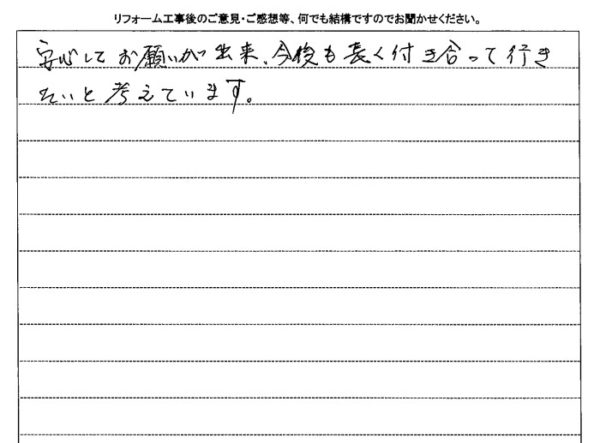 リフォーム工事後のご意見・ご感想等、何でも結構ですのでお聞かせください。
安心してお願いが出来、今後も長く付き合って行き
たいと考えています。